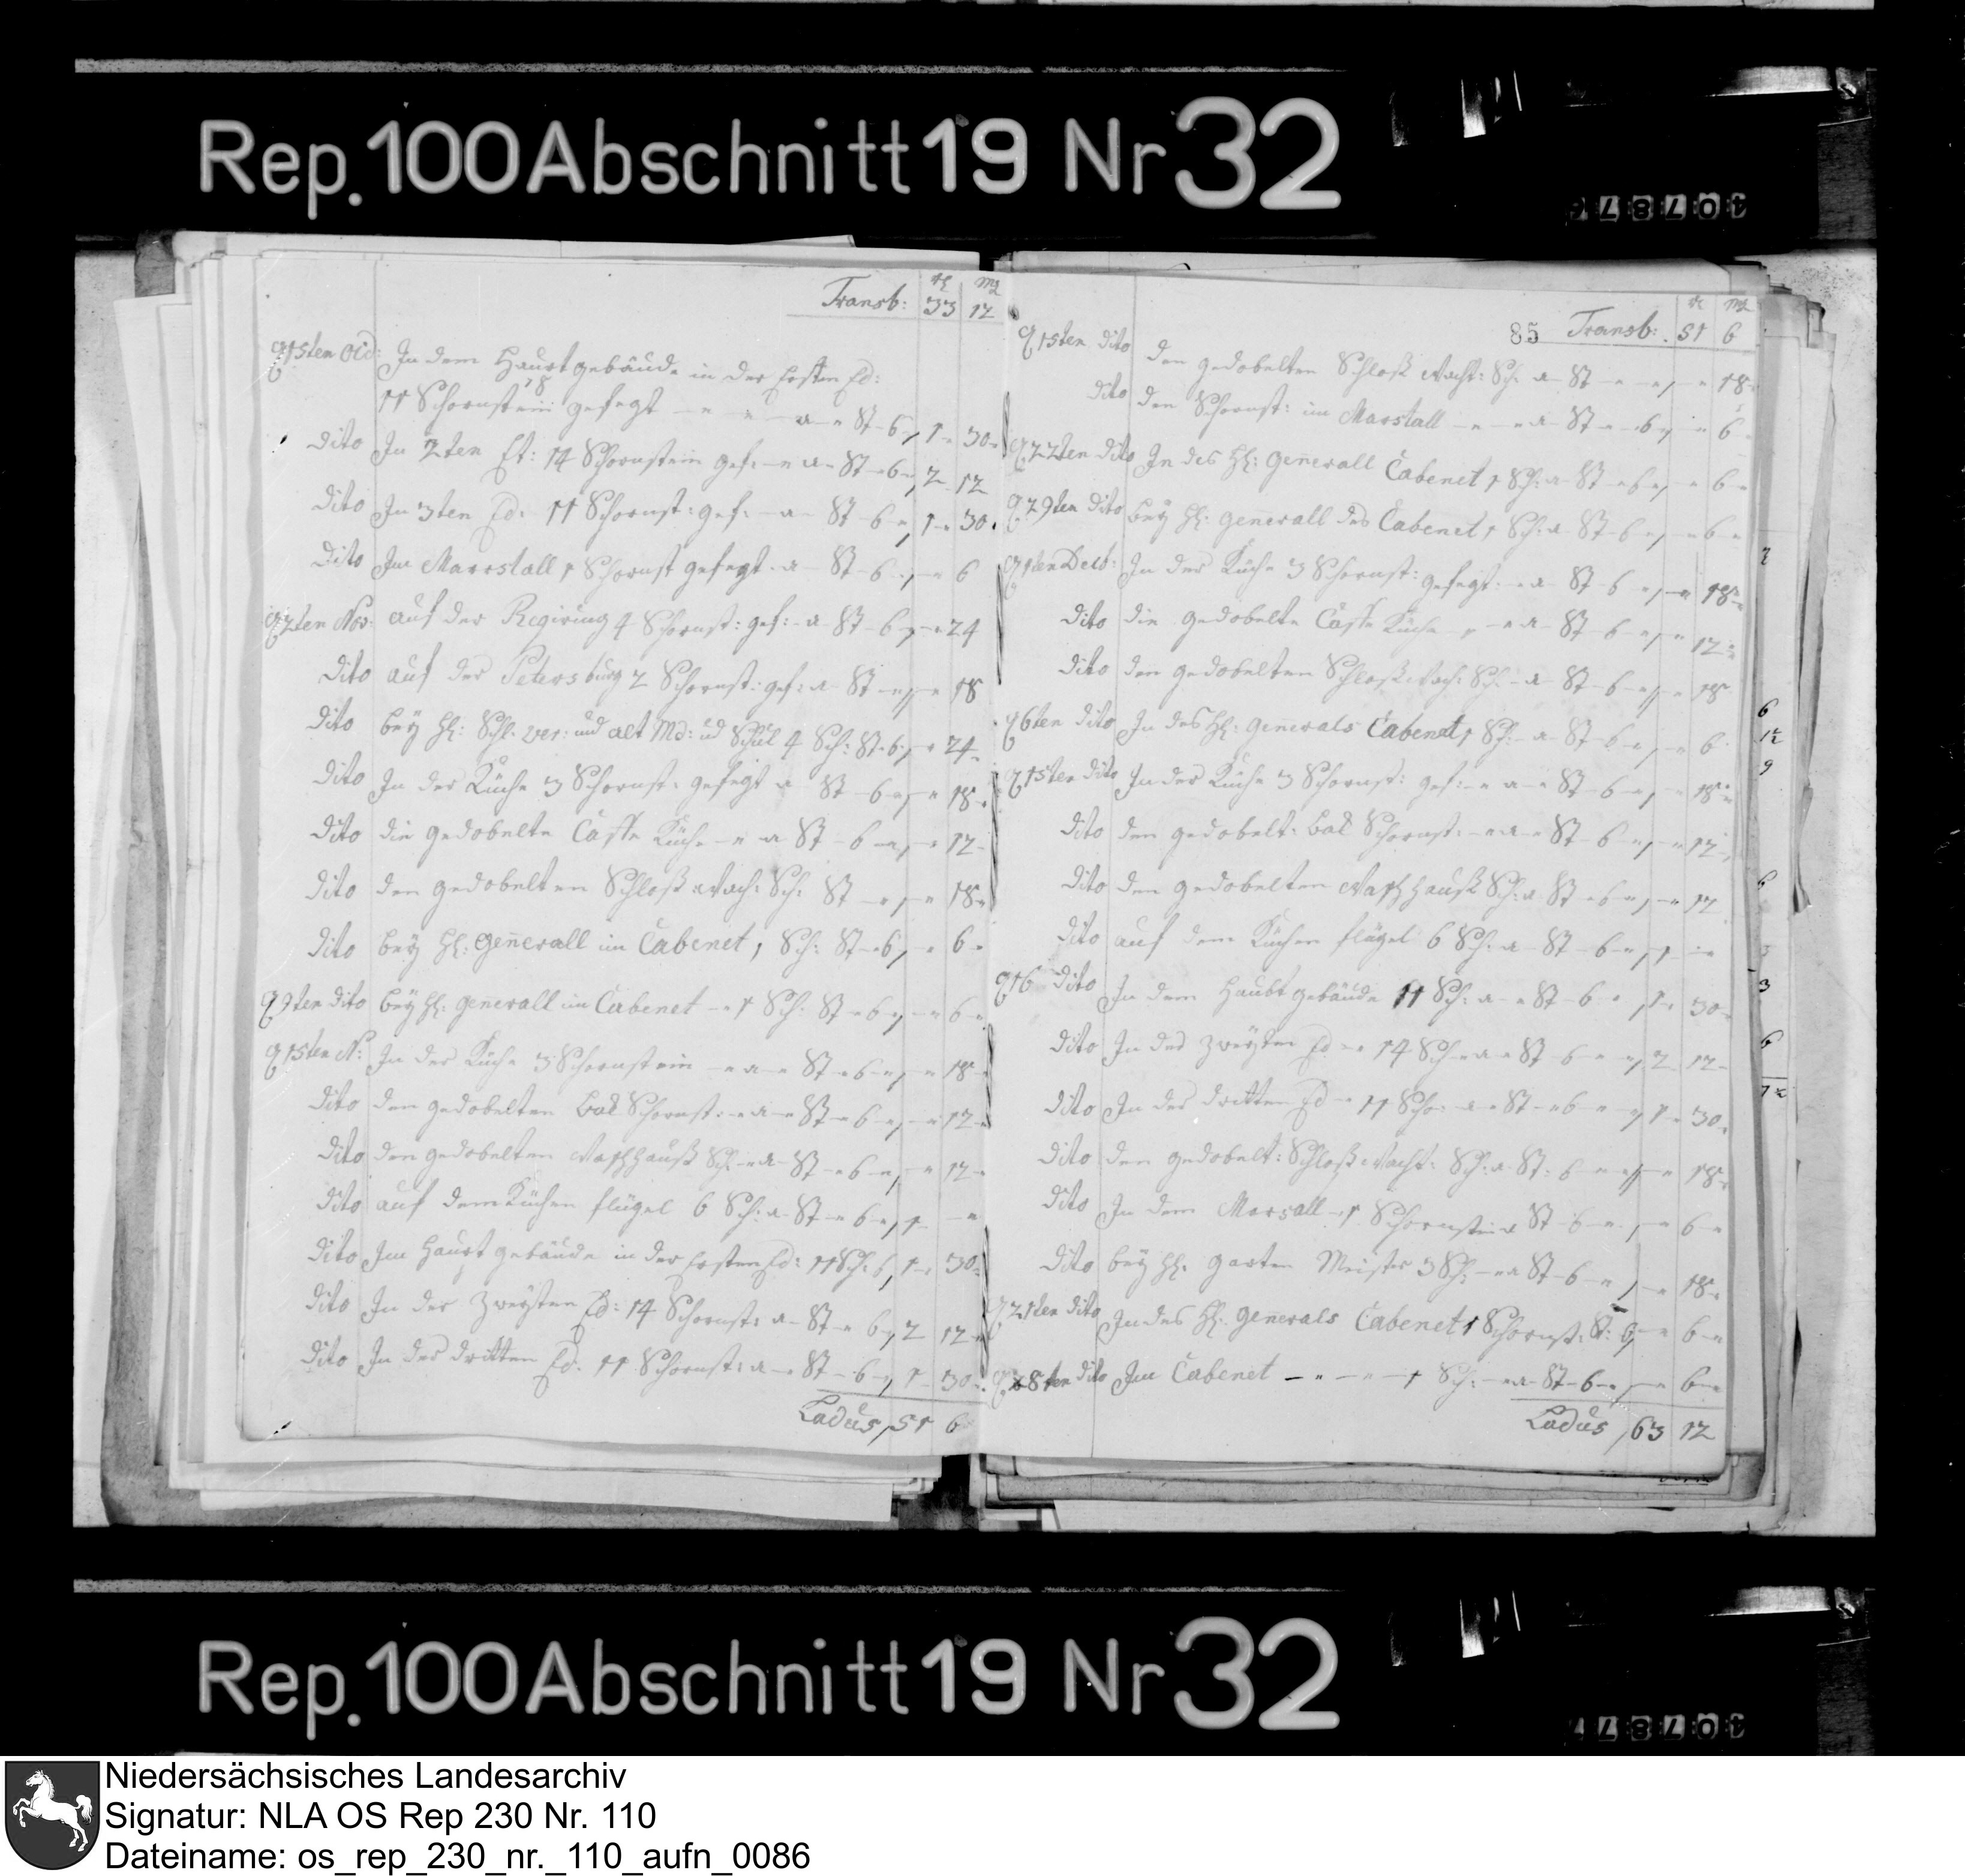 Rep. 100 Abschnitt 19 Nr 32
Transb: 33 12
In dem Haupt gebäude in der Ersten Ed:
11 Schornstein gefegt St 6 1 30
dito In 2ten Et: 14 Schornstein gef: a St 6 2 12
dito In 3ten Ed: 11 Schornst: gef: a St 6 1 30
dito Im Marstall 1 Schornst gefegt a St 6 6
2ten Nov: auf der Regirung 4 Schornst: gef: a St 6 24
dito auf der Petersburg 2 Schornst: gef: a St 18
dito bey H: Schl. ver: und alt Md: ud Schul 4 Sch: St 6 24
dito In der Küche 3 Schornst: gefegt a St 6 18
dito die gedobelte Caffe Küche a St 6 12
dito den gedobelten Schloß Wach: Sch: St 18
dito bey H: Generall im Cabenet 1 Sch: St 6 6
9ten dito bey H: generall im Cabenet 1 Sch: St 6 6
15ten N: In der Küche 3 Schornstein a St 6 18
dito den gedobelten Bak Schornst: a St 6 12
dito den gedobelten Waschhauß Sch a St 6 12
dito auf dem Küchen flügel 6 Sch: a St 6 1
dito Im Haupt gebäude in der Ersten Ed: 11 Sch: 6 1 30
dito In der Zweyten Ed: 14 Schornst: a St 6 2 12
dito In der dritten Ed: 11 Schornst: a St 6 1 30
Ladus 51 6
85 Transb: 51 6
15ten dito den gedobelten Schloß Wacht: Sch: a St 18
dito den Schornst: im Marstall a St 6 6
22ten dito In des H: Generall Cabenet 1 Sch: a St 6 6
29ten dito bey H: generall des Cabenet 1 Sch: a St 6 6
1ten Decb: In der Küche 3 Schornst: gefegt: a St 6 18
dito die gedobelte Caffe Küche a St 6 12
dito den gedobelten Schloß Wach: Sch: a St 6 18
6ten dito In des H: Generals Cabenet 1 Sch: a St 6 6
15ten dito In der Küche 3 Schornst: gef: a St 6 18
dito den gedobelt: Bak Schornst: a St 6 12
dito den gedobelten Waschhauß Sch: a St 6 12
dito auf dem Küchen flügel 6 Sch: a St 6 1
16 dito In dem Haubt gebäude 11 Sch: a St 6 1 30
dito In der Zweyten Ed 14 Sch a St 6 2 12
dito In der dritten Ed 11 Scho: a St 6 1 30
dito den gedobelt: Schloß Wacht: Sch: a St: 6 18
dito In dem Marsall 1 Schornstein St 6 6
dito bey H: garten Meister 3 Sch: a St 6 18
21ten dito In des H: Generals Cabenet 1 Schornst: St: 6 6
28ten dito Im Cabenet 1 Sch: a St 6 6
Ladus 63 12
Rep. 100 Abschnitt 19 Nr 32
Niedersächsisches Landesarchiv
Signatur: NLA OS Rep 230 Nr. 110
Dateiname: os_rep_230_nr._110_aufn_0086